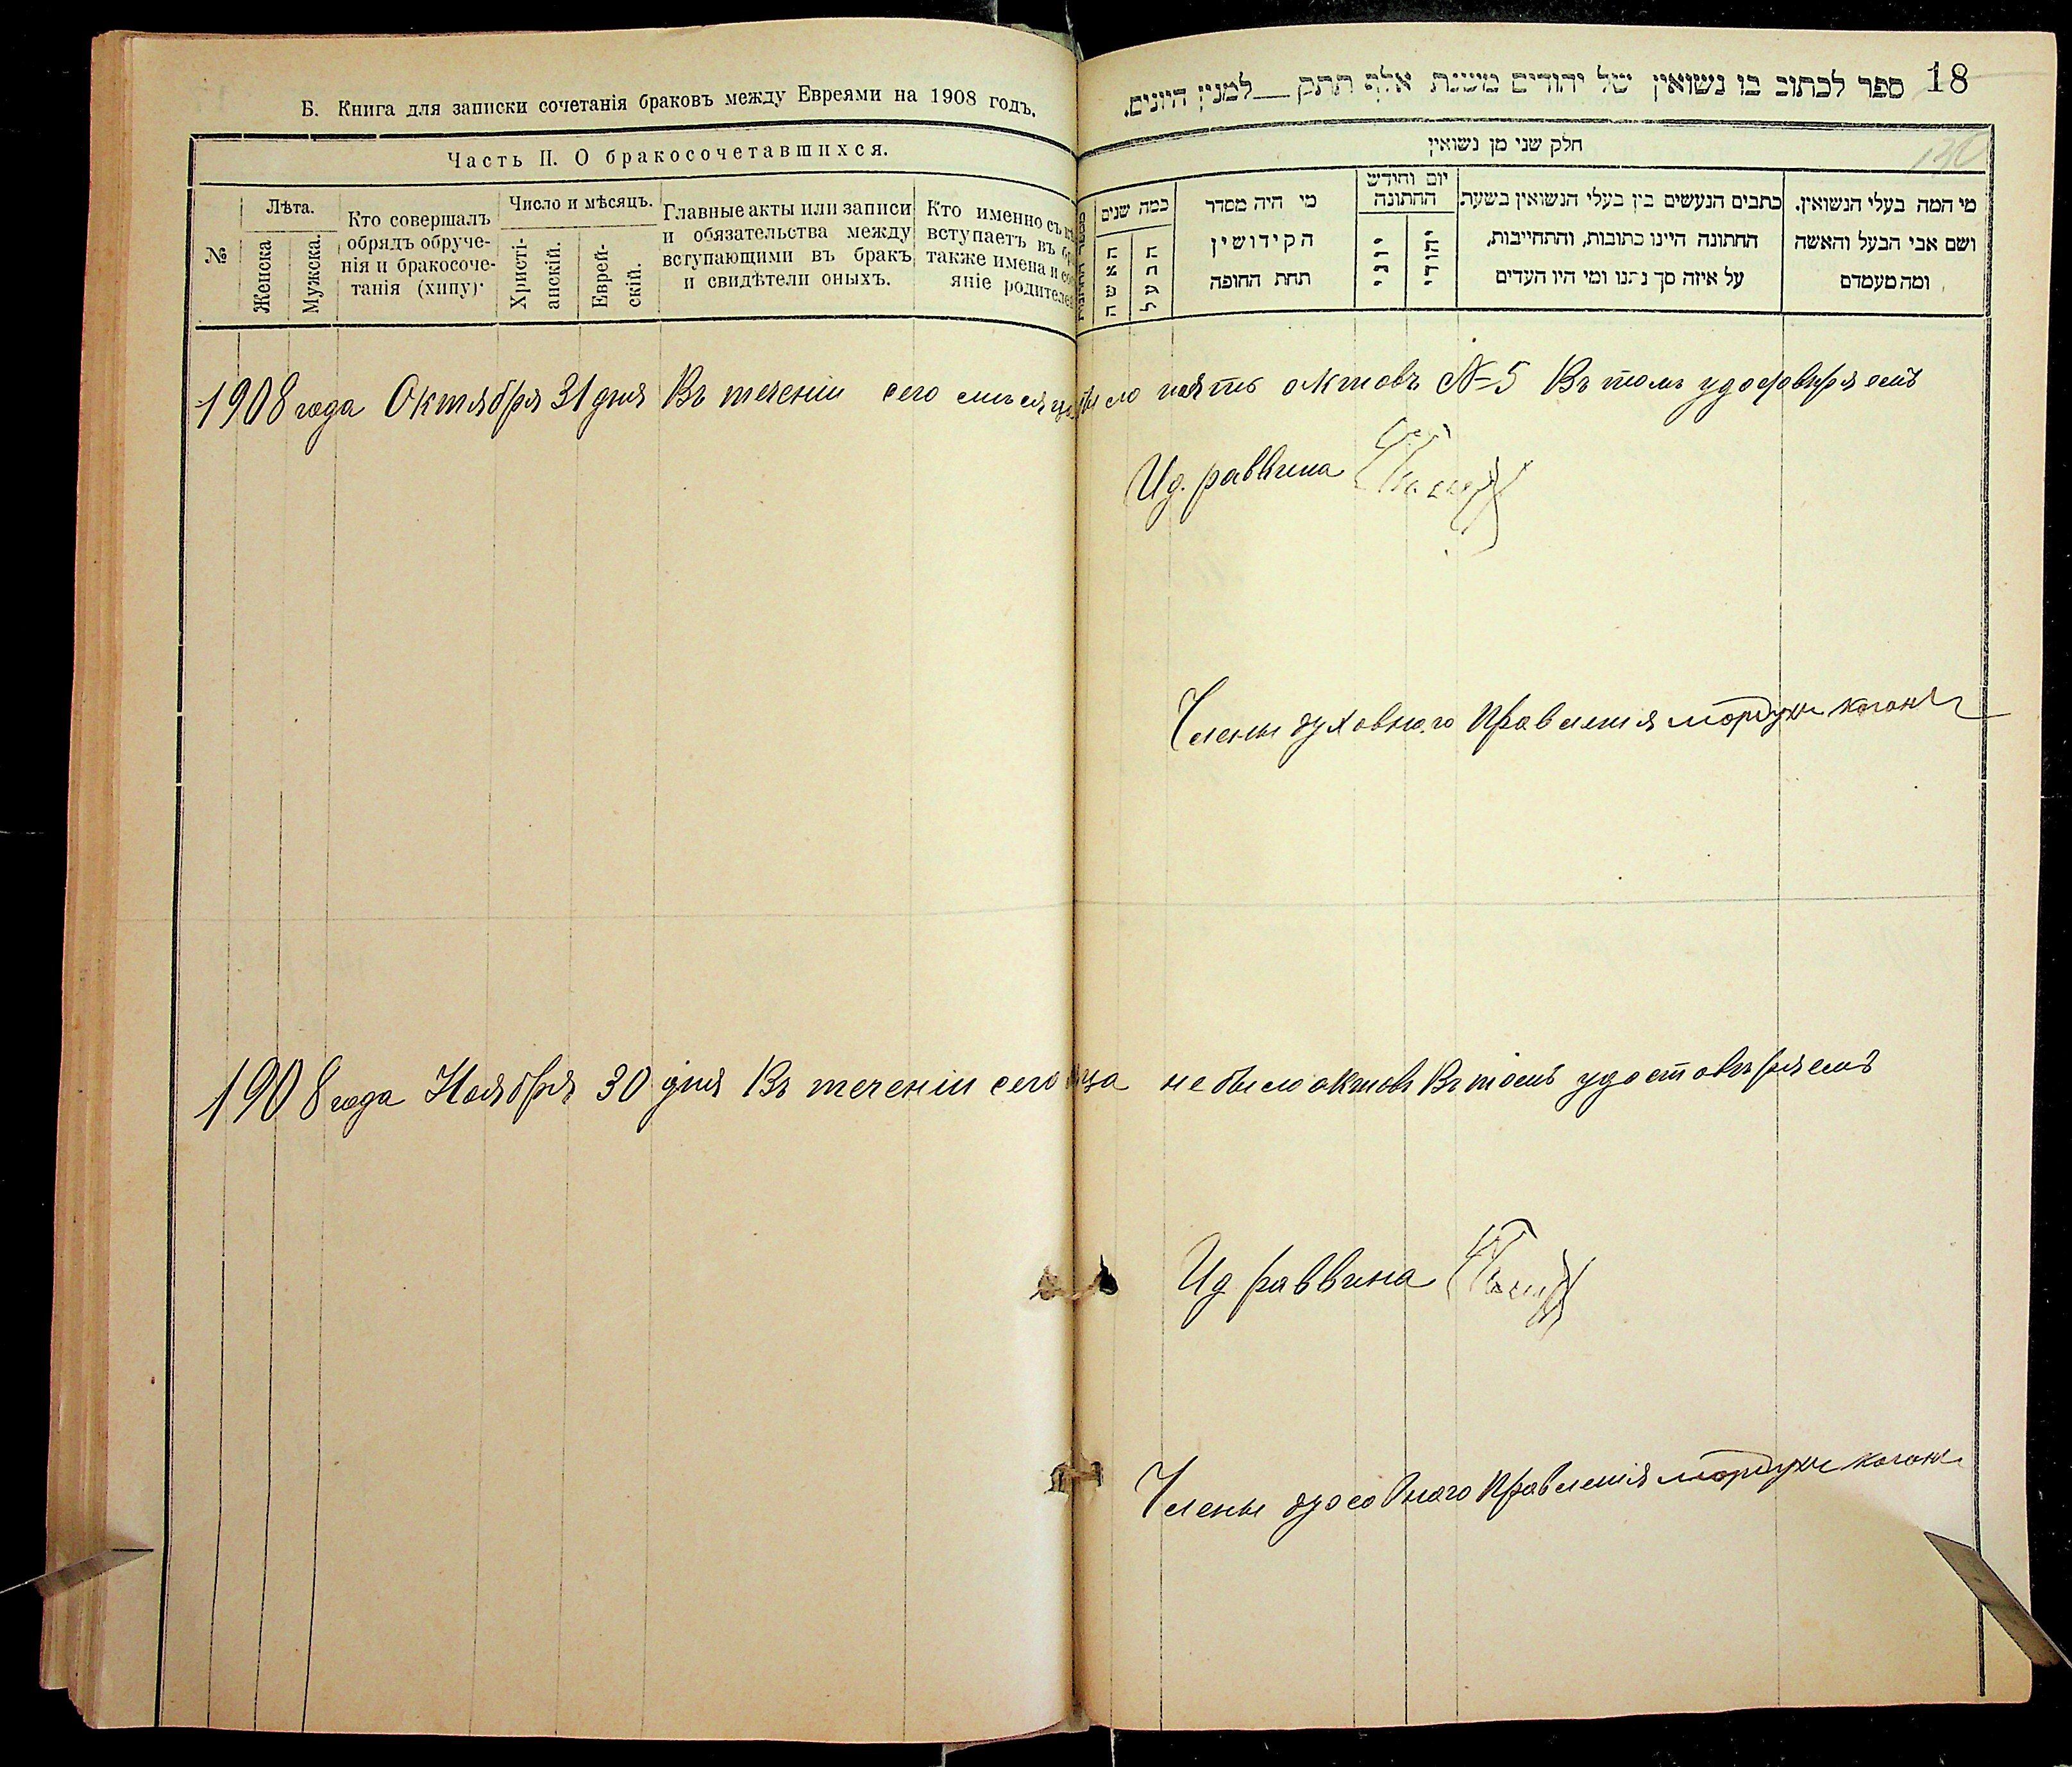 Б. Книга для записки сочетанія браковъ между Евреями на 1908 годъ.
Часть II. О бракосочетавшихся.
№
Лѣта.
Женска
Мужска.
Кто совершалъ
обрядъ обруче-
нія и бракосоче-
танія (хипу)
Число и мѣсяцъ.
Христі-
анскій.
Еврей-
скій.
Главные акты или записи
и обязательства между
вступающими въ бракъ
и свидѣтели оныхъ.
Кто именно съ
вступаетъ въ
также имена и
яніе родителей
18 ספר לכתוב בו נשואין של יהודים משנת אלף תתק__למנין היונים.
חלק שני מן נשואין
מי המה בעלי הנשואין.
ושם אבי הבעל והאשה
ומה מעמדם
כתבים הנעשים בין בעלי הנשואין בשעת
החתונה היינו כתובות, והתחייבות,
על איזה סך נתנו ומי היו העדים
יום וחידש
החתונה
יהודי
יוני
מי היה מסדר
הקידושין
תחת החופה
כמה שנים
הבעל
האשה
1908 года Октября 31 дня Въ теченіи сего мѣсяца было пять актовъ №5 Въ томъ удостовѣряемъ
Ид. раввина
Члены духовнаго Правленія мордухъ каганъ
1908 года Ноября 30 дня Въ теченіи сего м-ца не было актовъ Въ томъ удостовѣряемъ
Ид раввина
Члены духовнаго Правленія мордухъ каганъ